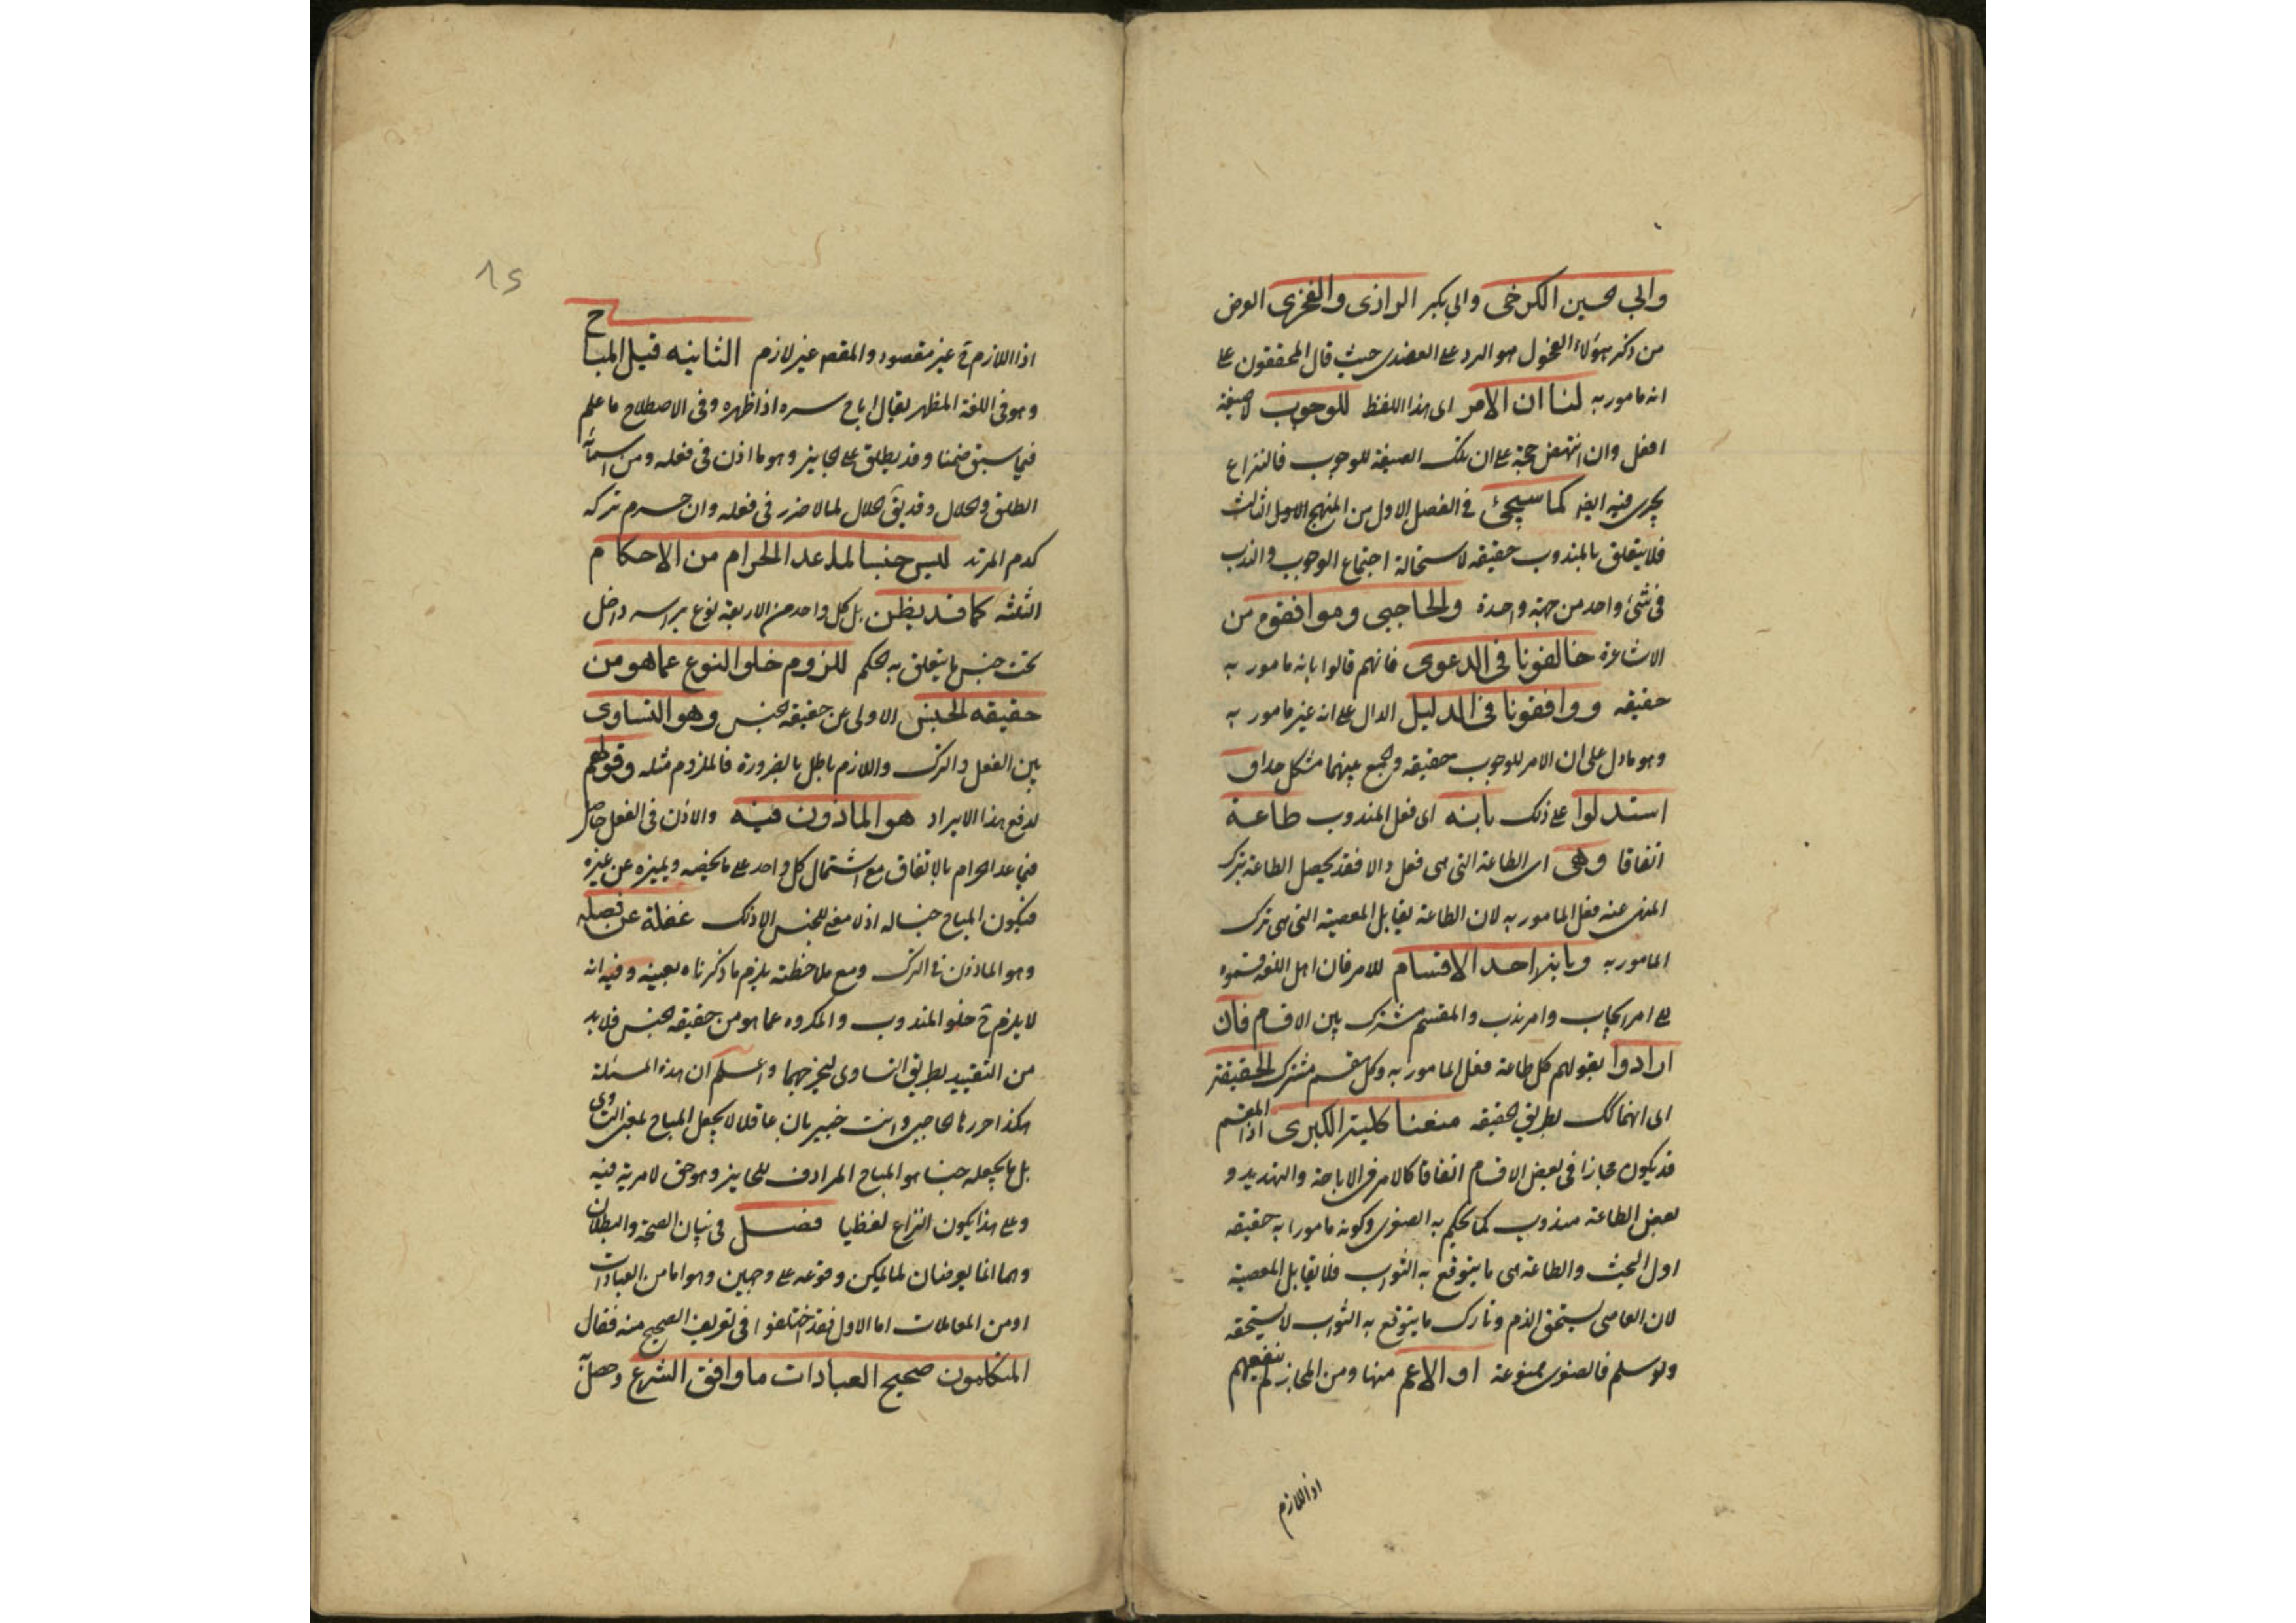 وابي الحسين الكرخي وابي بكر الرازي والفخري الغرض
من ذكر هؤلاء الفحول هو الرد على العضدي حيث قال المحققون على
انه مامور به لنا ان الامر اى هذا اللفظ للوجوب لا صيغة
افعل وان انتهض حجة على ان تلك الصيغة للوجوب فالنزاع
يجرى فيه ايضا كما سيجئ في الفصل الاول من المنهج الاول الثالث
فلا يتعلق بالمندوب حقيقه لاستحالة اجتماع الوجوب والندب
فى شئ واحد من جهة واحدة والحاجبي وموافقوه من
الاشاعرة خالفونا في الدعوى فانهم قالوا بانه مامور به
حقيقه ووافقونا في الدليل الدال على انه غير مامور به
وهو ما دل على ان الامر للوجوب حقيقه والجمع بينهما مشكل
استدلوا على ذلك بانه اى فعل المندوب طاعة
اتفاقا وهى اى الطاعة التى هى فعل والا فقد يحصل الطاعة بترك
المنهى عنه فعل المامور به لان الطاعة يقابل المعصية التى هى ترك
المامور به وبانه احد الاقسام للامر فان اهل اللغه قسموه
على امر ايجاب وامر ندب والمقسم مشترك بين الاقسام فان
ارادوا بقولهم كل طاعة فعل المامور به وكل مقسم مشترك الحقيقة
اى انهما كك بطريق الحقيقه منعنا كلية الكبرى اذ المقسم
قد يكون مجازا فى بعض الاقسام اتفاقا كالامر فى الاباحة والتهديد و
بعض الطاعة مندوب كما يحكم به الصغرى وكونه مامورا به حقيقه
اول البحث والطاعة هى ما يتوقع به الثواب فلا تقابل المعصية
لان العاصى يستحق الذم وتارك ما يتوقع به الثواب لا يستحقه
ولو سلم فالصغرى ممنوعة او الاعم منها ومن المجاز لم ينفعهم
اذ اللازم
اذ اللازم ح غير مقصود والمقصد غير لازم الثانيه قيل المباح
وهو فى اللغة المظهر يقال اباح سره اذا ظهره وفى الاصطلاح ما علم
فيما سبق ضمنا وقد يطلق على الجايز وهو ما اذن فى فعله ومن اسمائه
الطلق والحلال وقد يق الحلال لما لا ضرر فى فعله وان حرم تركه
كدم المرتد ليس جنسا لما عدا الحرام من الاحكام
الثلثه كما قد يظن بل كل واحد من الاربعة نوع براسه داخل
تحت جنس ما يتعلق به الحكم للزوم خلو النوع عما هو من
حقيقه الجنس الاولى عن حقيقه الجنس وهو التساوى
بين الفعل والترك واللازم باطل بالضرورة فالملزوم مثله وقولهم
لدفع هذا الايراد هو الماذون فيه والاذن فى الفعل حاصل
فيما عدا الحرام بالاتفاق مع اشتمال كل واحد على ما يخصه ويميزه عن غيره
فيكون المباح جنسا له اذ لا معنى للجنس الا ذلك غفلة عن فصله
وهو الماذون فى الترك ومع ملاحظته يلزم ما ذكرناه بعينه وفيه انه
لا يلزم ح خلو المندوب والمكروه عما هو من حقيقه الجنس فلا بد
من التقييد بطريق التساوى ليخرجهما واعلم ان هذه المسئلة
هكذا حررها الحاجبى وانت خبير بان عاقلا لا يجعل المباح بمعنى التساوى
بل ما يجعله جنسا هو المباح المرادف للجايز وهو حق لا مرية فيه
وعلى هذا يكون النزاع لفظيا فصل فى بيان الصحة والبطلان
وهما انما يعرضان لما يمكن وقوعه على وجهين وهو اما من العبادات
او من المعاملات اما الاول فقد اختلفوا فى تعريف الصحيح منه فقال
المتكلمون صحيح العبادات ما وافق الشرع وحصل